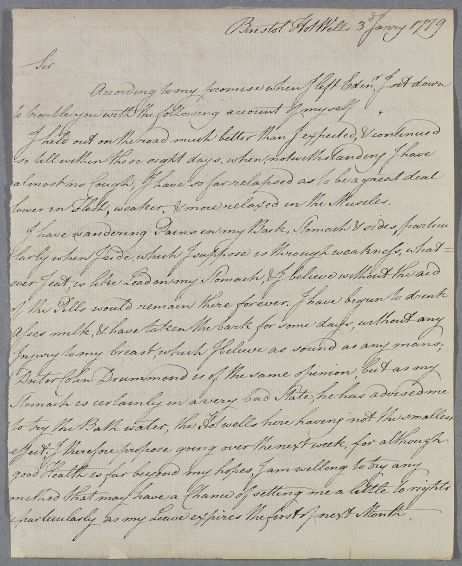 Bristol Hot Wells 3d Janry 1779
Sir
According to my promise when I left Edinr. I sit down
to trouble you with the following account of myself
I held out on the road much better than I expected, & continued
so till within these eight days, when, notwithstanding I have
almost no Cough, I have so far relapsed as to be a great deal
lower in Flesh, weaker, & more relaxed in the Muscles.
I have wandering Pains in my Back, Stomach & sides, particu
larly when I ride, which I suppose is through weakness, what=
ever I eat, is like Lead on my Stomach, & I believe without the aid
of the Pills would remain there forever. I have begun to drink
Asses milk, & have taken the bark for some days, without any
Injury to my breast, which I believe as sound as any mans,
Doctor John Drummond is of the same opinion but as my
Stomach is certainly in a very bad State, he has advised me
to try the Bath water, the Hot wells here having not the smallest
effect, I therefore propose going over the next week, for although
good Health is far beyond my hopes, I am willing to try any
method that may have a Chance of setting me a little to rights
particularly as my Leave expires the first of next Month.